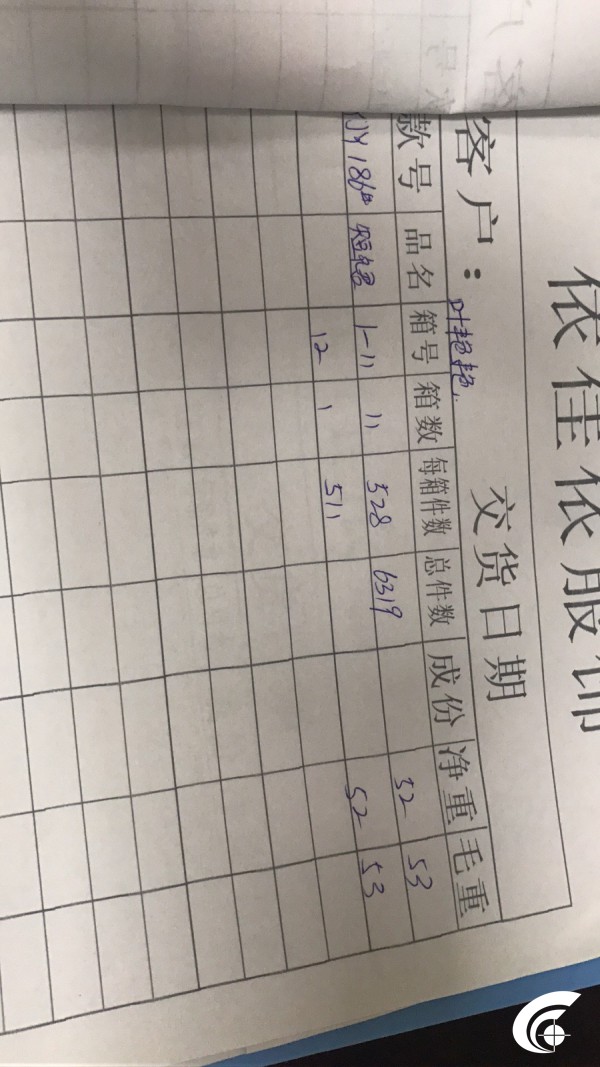 依佳依服饰
客户：叶艳艳 交货日期
款号 品名 箱号 箱数 每箱件数 总件数 成份 净重 毛重
1-11 11 528 6319 52 53
12 1 511 52 53